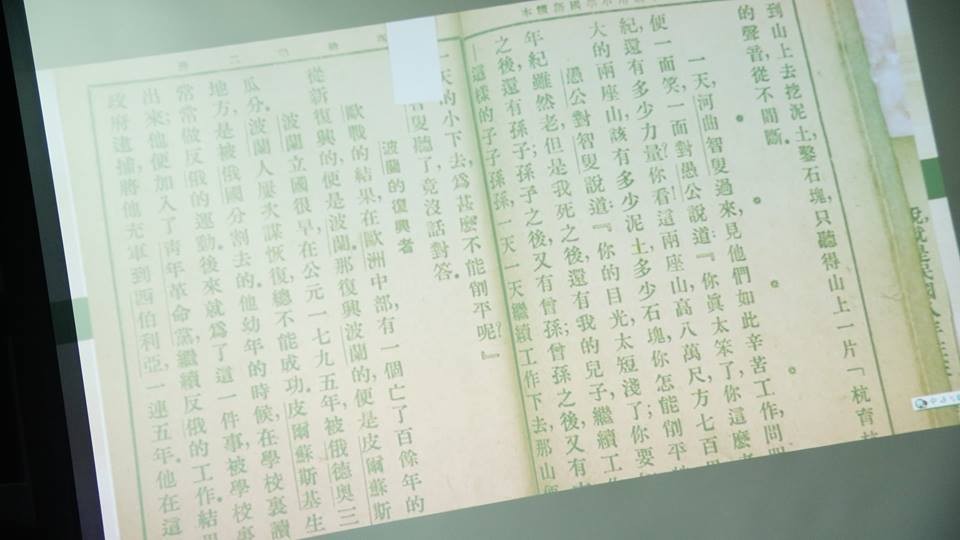 小學國語讀本
到山上去挖泥土，鑿石塊，只聽得山上一片「杭育
的聲音，從不間斷。
一天，河曲智叟過來，見他們如此辛苦工作，問
便一面笑，一面對愚公說道：『你眞太笨了，你這麼
紀，還有多少力量？你看這兩座山，高八萬尺，方七百
大的兩座山，該有多少泥土，多少石塊，你怎能削平
愚公對智叟說道：『你的目光太短淺了；你要
年紀雖然老，但是我死之後，還有我的兒子，繼續工
之後，還有孫子；孫子之後，又有曾孫；曾孫之後，又有
這樣的子子孫孫，一天一天繼續工作下去，那山
一天的小下去，爲甚麼不能削平呢？』
智叟聽了，竟沒話對答。
波蘭的復興者
歐戰的結果，在歐洲中部，有一個亡了百餘年的
從新復興的，便是波蘭。那復興波蘭的，便是皮爾蘇斯
波蘭立國很早，在公元一七九五年，被俄德奧三
瓜分。波蘭人屢次謀恢復，總不能成功。皮爾蘇斯基生
地方，是被俄國分割去的。他幼年的時候，在學校裏讀
常常做反俄的運動。後來就爲了這一件事，被學校
出來，他便加入了靑年革命黨，繼續反俄的工作。結
政府逮捕，將他充軍到西伯利亞，一連五年。他在這